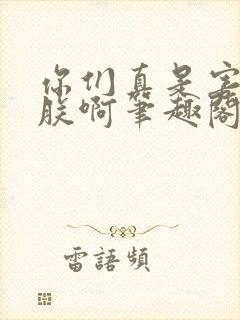 你们真是害
朕啊笔趣阁
雷語頻